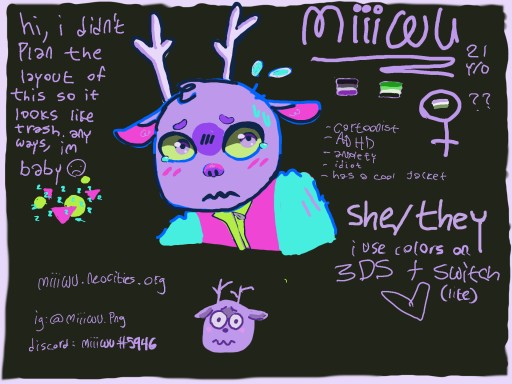 hi, i didn't
plan the
layout of
this so it
looks like
trash. any
ways, im
baby
miiiwu
21
y/o
??
- cartoonist
- ADHD
- anxiety
- idiot
- has a cool jacket
she/they
i use colors on
3DS + switch
(lite)
miiiwu.neocities.org
ig:@miiiwu.png
discord: miiiwu#5946